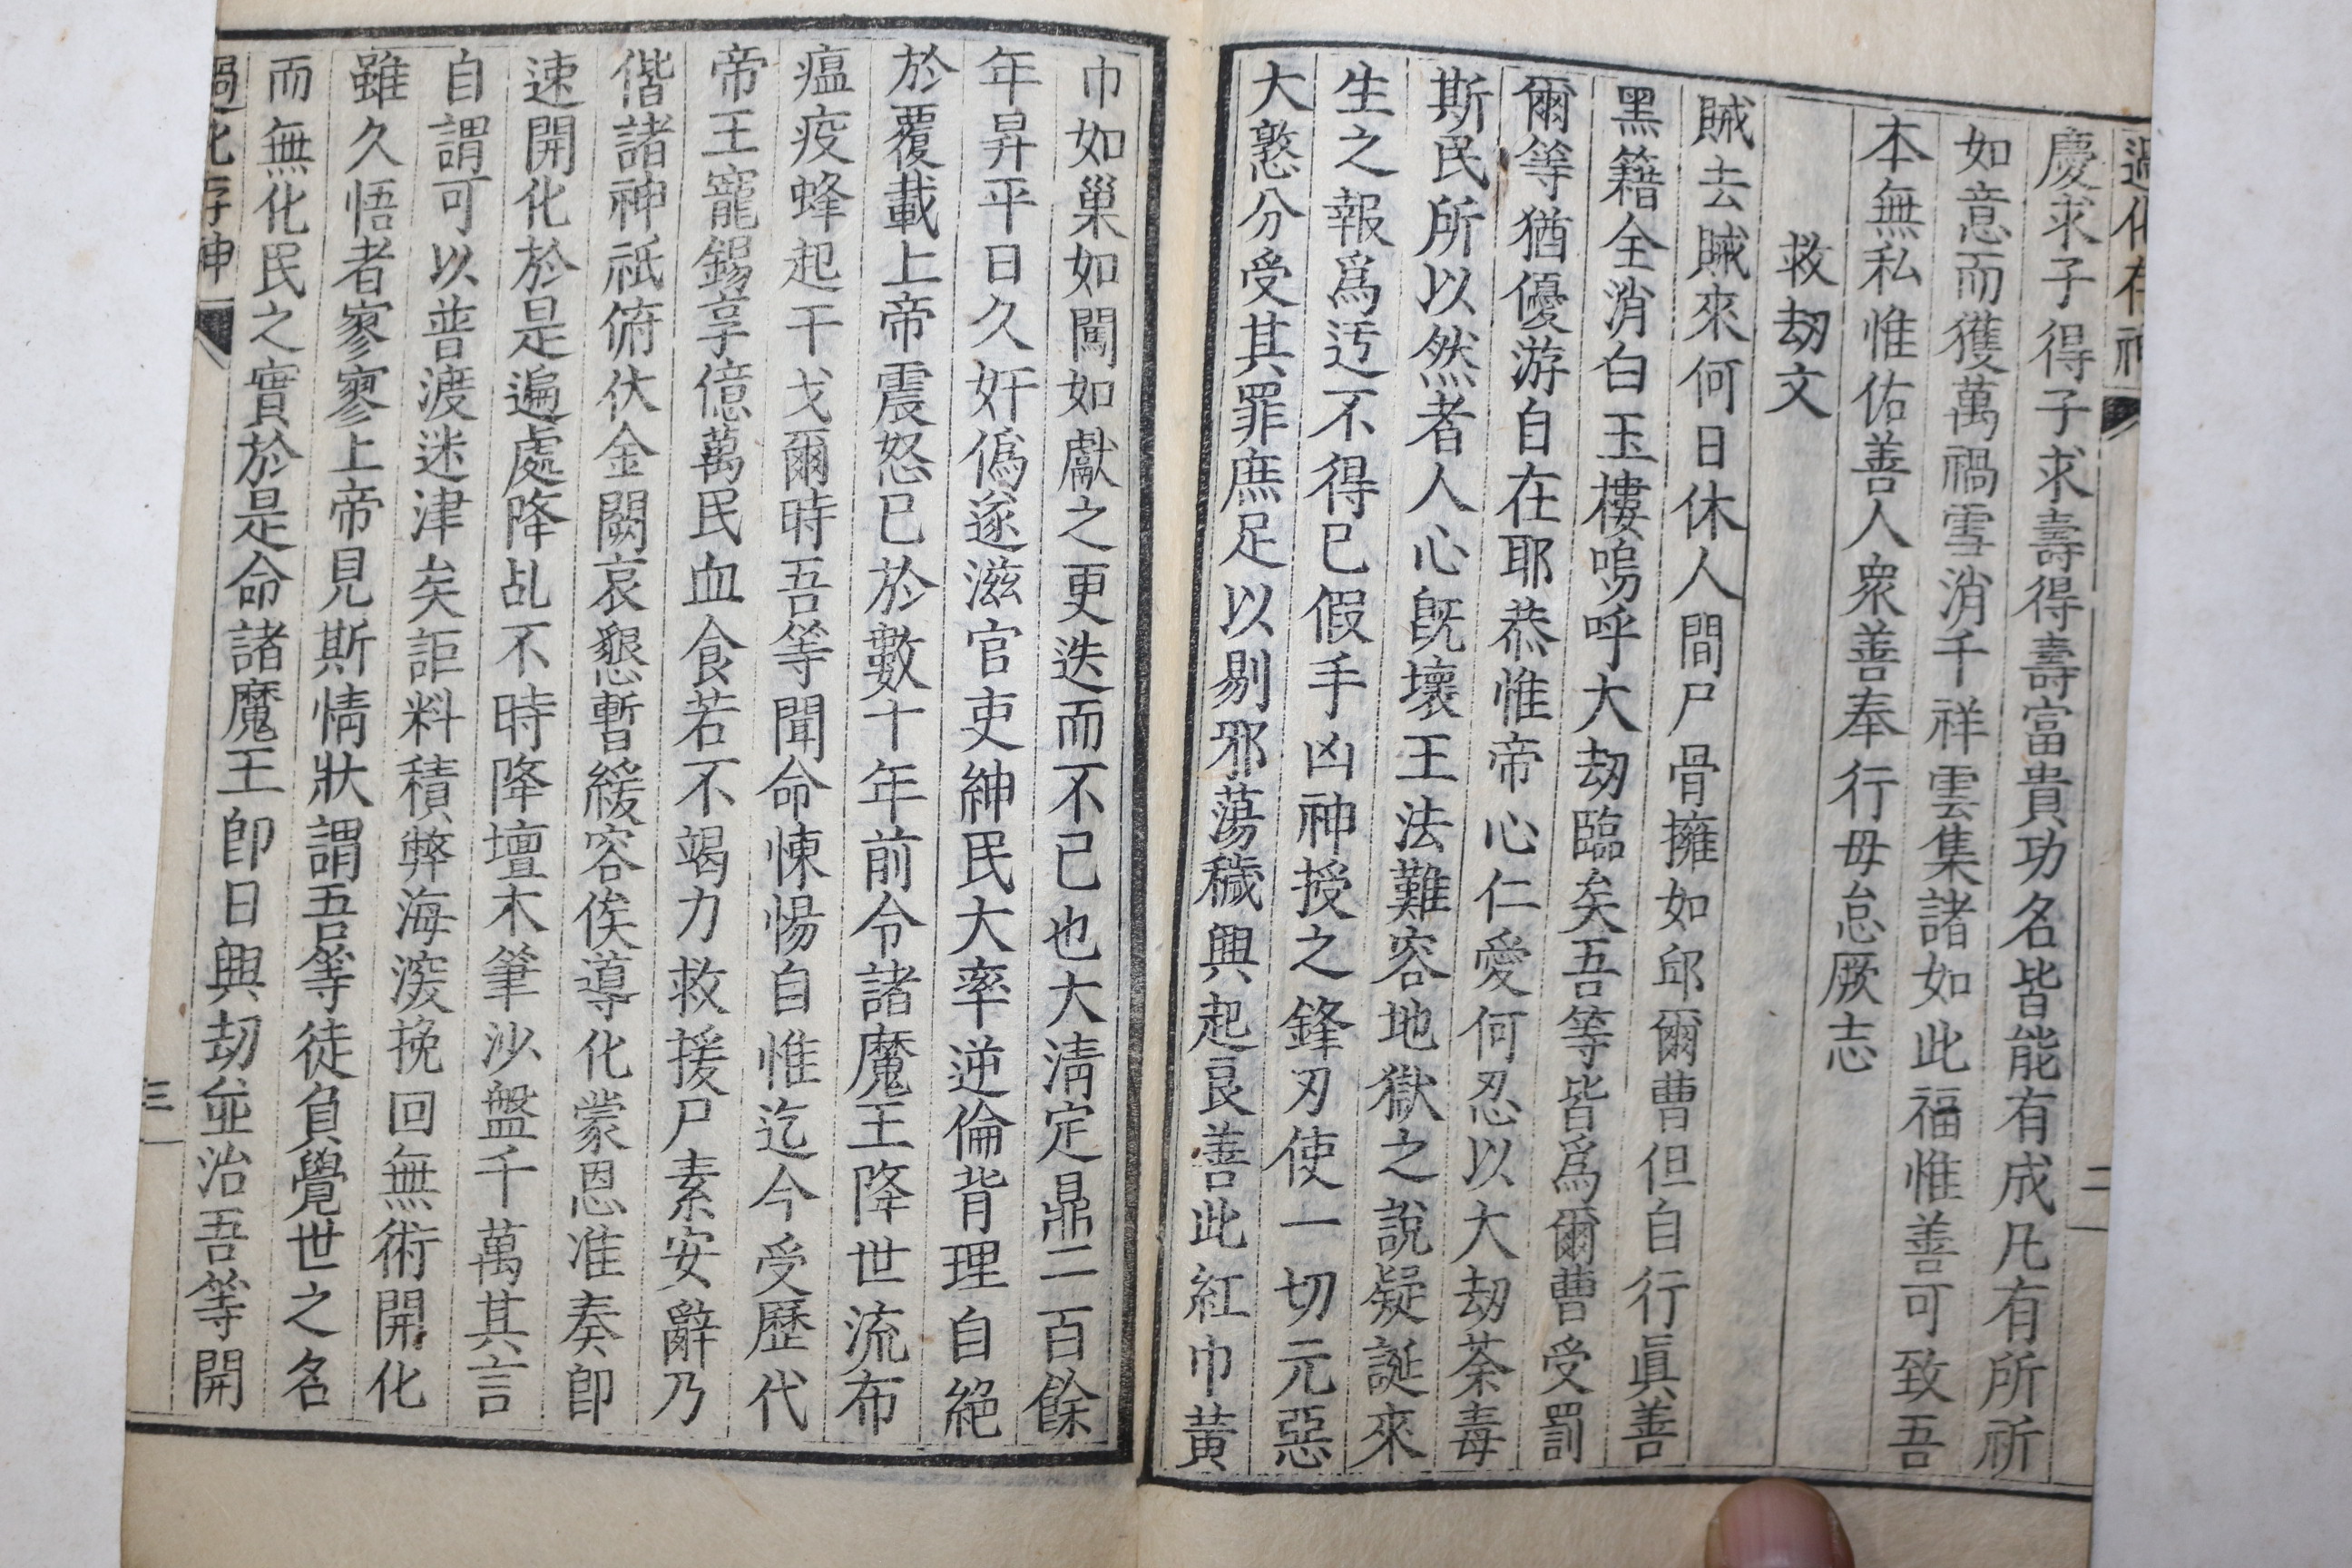 過化存神
二
慶求子得子求壽得壽富貴功名皆能有成凡有所祈
如意而獲萬禍雪消千祥雲集諸如此福惟善可致吾
本無私惟佑善人衆善奉行毋怠厥志
救劫文
賊去賊來何日休人間尸骨擁如邱爾曹但自行眞善
黑籍全消白玉樓嗚呼大劫臨矣吾等皆爲爾曹受罰
爾等猶優游自在耶恭惟帝心仁愛何忍以大劫荼毒
斯民所以然者人心旣壞王法難容地獄之說疑誕來
生之報爲迃不得已假手凶神授之鋒刃使一切元惡
大憝分受其罪庶足以剔邪蕩穢興起良善此紅巾黃
巾如巢如闖如獻之更迭而不已也大淸定鼎二百餘
年昇平日久奸僞滋官吏紳民大率逆倫背理自絕
於覆載上帝震怒已於數十年前令諸魔王降世流布
瘟疫蜂起干戈爾時吾等聞命悚惕自惟迄今受歷代
帝王寵錫享億萬民血食若不竭力救援尸素安辭乃
偕諸神祇俯伏金闕哀懇暫緩容俟導化蒙恩准奏卽
速開化於是遍處降乩不時降壇木筆沙盤千萬其言
自謂可以普渡迷津矣詎料積弊海深挽回無術開化
雖久悟者寥寥上帝見斯情狀謂吾等徒負覺世之名
而無化民之實於是命諸魔王卽日興劫並治吾等開
過化存神
三